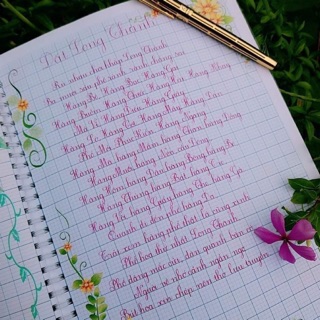 Long Thành
Rủ nhau chơi khắp Long Thành
Ba mươi sáu phố rành rành chẳng sai
Hàng Bồ, Hàng Bạc, Hàng Gai
Hàng Buồm, Hàng Thiếc, Hàng Hài, Hàng Khay
Mã Vĩ, Hàng Điếu, Hàng Giày
Hàng Lờ, Hàng Cót, Hàng Mây, Hàng Đàn
Phố Mới, Phúc Kiến, Hàng Ngang
Hàng Mã, Hàng Mắm, Hàng Than, Hàng Đồng
Hàng Muối, Hàng Nón, Cầu Đông
Hàng Hòm, Hàng Đậu, Hàng Bông, Hàng Bè
Hàng Thùng, Hàng Bát, Hàng Tre
Hàng Vôi, Hàng Giấy, Hàng The, Hàng Gà
Quanh đi đến phố Hàng Da
Trải xem hàng phố thật là cũng xinh
Phồn hoa thứ nhất Long Thành
Phố giăng mắc cửi, đàn quanh bàn cờ
Người về nhớ cảnh ngẩn ngơ
Bút hoa xin chép nên thơ lưu truyền